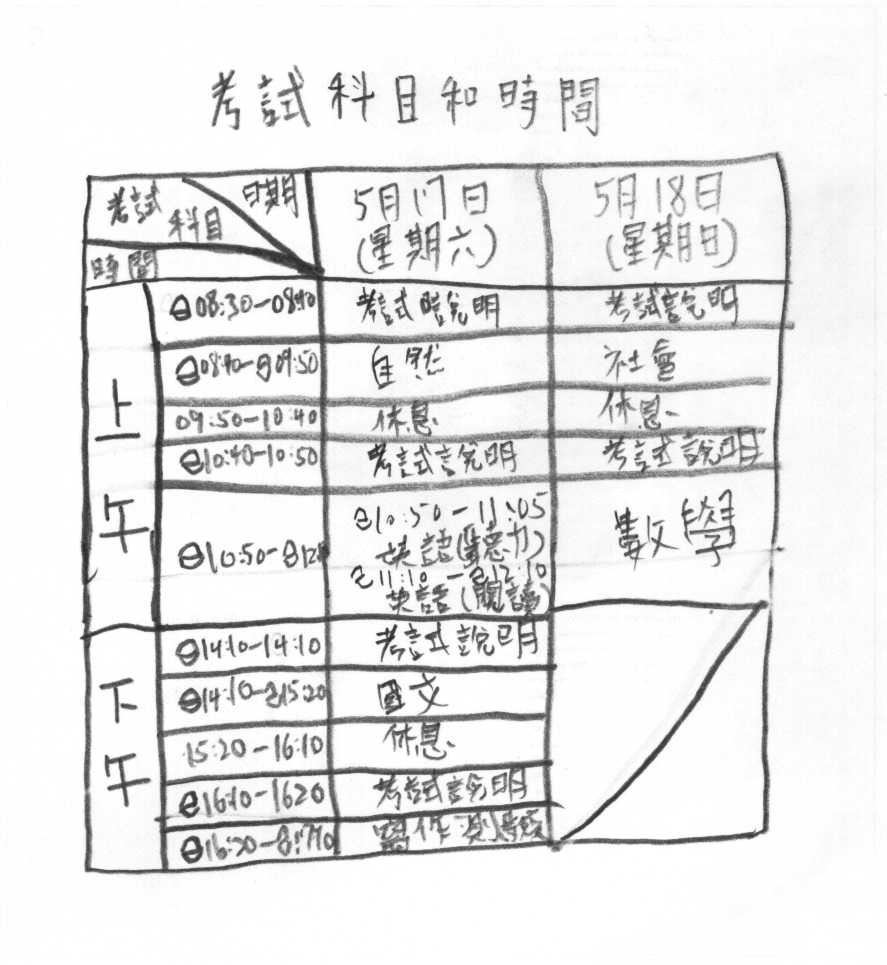 考試科目和時間
考試科目 日期 時間 5月17日(星期六) 5月18日(星期日)
上午
08:30-08:40 考試說明 考試說明
08:40-09:50 自然 社會
09:50-10:40 休息 休息
10:40-10:50 考試說明 考試說明
10:50- 10:50-11:05 數學
英語(聽力)
11:10-12:10
英語(閱讀)
下午
14:10-14:10 考試說明
14:10-15:20 國文
15:20-16:10 休息
16:10-1620 考試說明
16:20- 寫作測驗